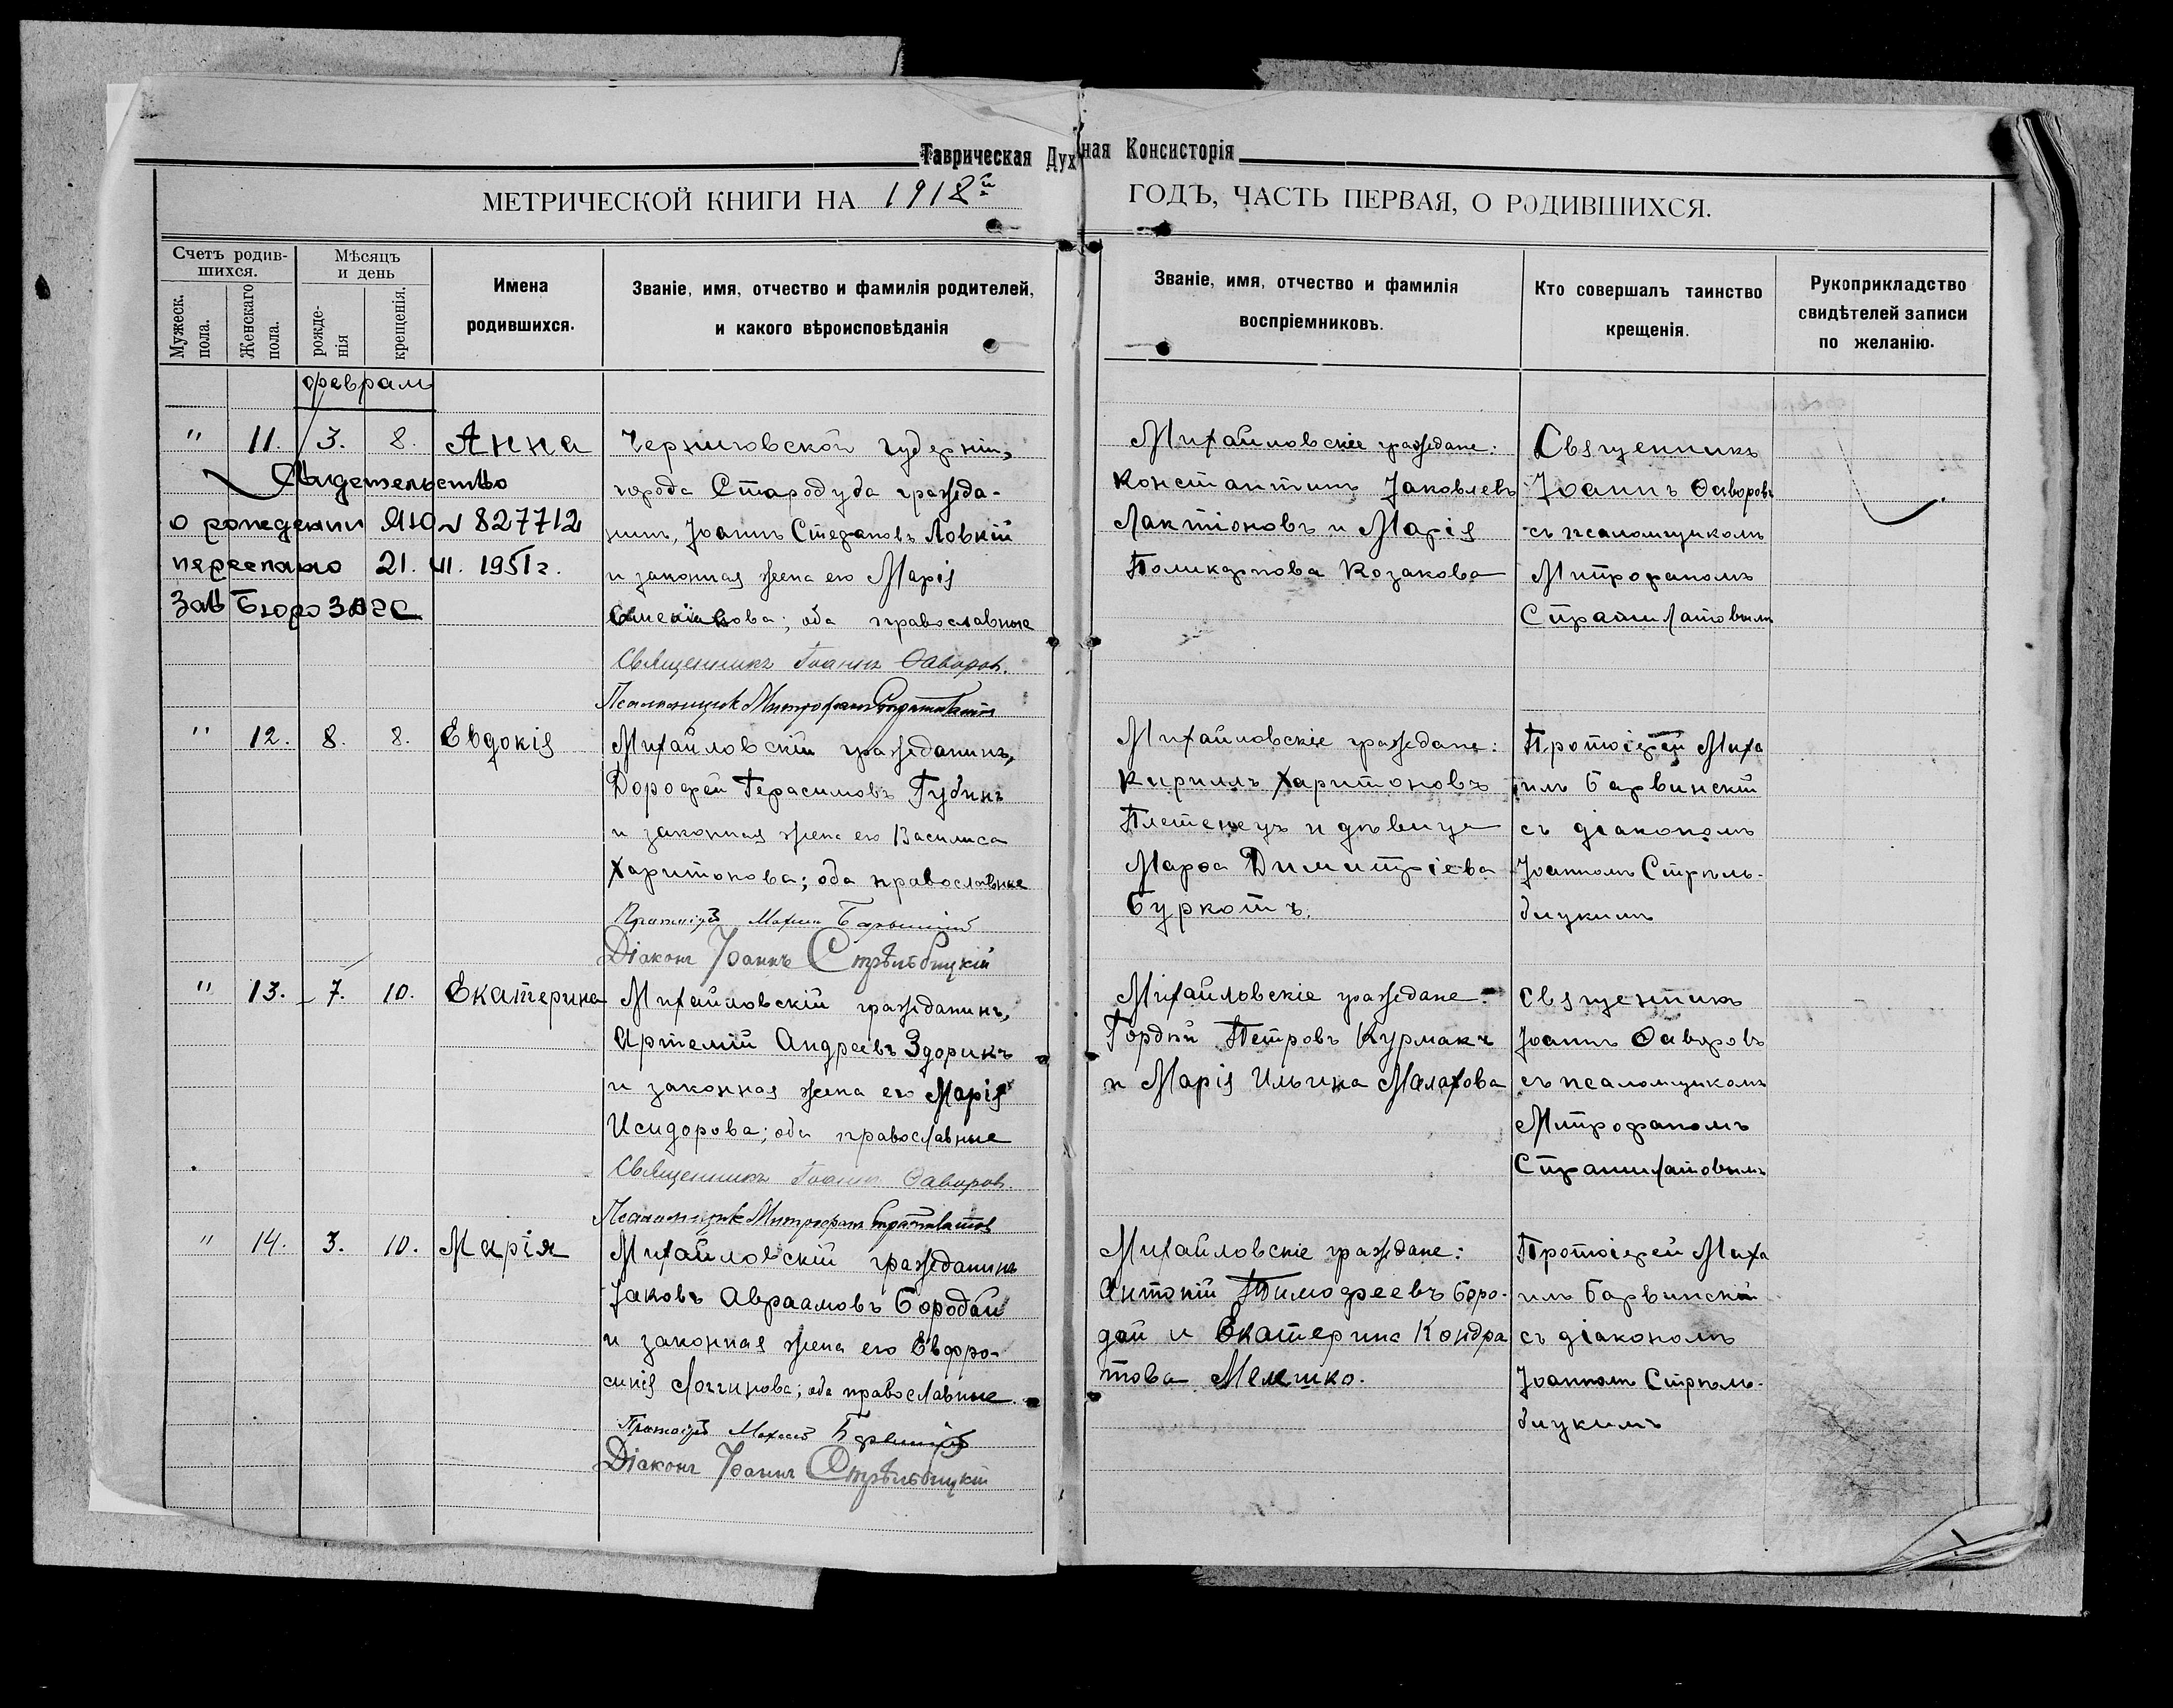 Таврическая Духовная Консисторія
МЕТРИЧЕСКОЙ КНИГИ НА 1918й ГОДЪ, ЧАСТЬ ПЕРВАЯ, О РОДИВШИХСЯ.
Счетъ родив-
шихся.
Мужеск.
пола.
Женскаго
пола.
Мѣсяцъ
и день
рожде-
нія
крещенія.
Имена
родившихся.
Званіе, имя, отчество и фамилія родителей,
и какого вѣроисповѣданія
Званіе, имя, отчество и фамилія
воспріемниковъ.
Кто совершалъ таинство
крещенія.
Рукоприкладство
свидѣтелей записи
по желанію.
февраля
" 11. 3. 8. Анна
Свидетельство
о рождении ЯЮ № 827712
переслано 21. VI. 1951г.
Зав Бюро ЗАГС
Черниговской губерніи,
города Стародуба гражда-
нинъ, Іоаннъ Стефановъ Ловкій
и законная жена его Марія
оба православные
Священникъ Іоаннъ Ѳаворов.
Псаломщик Митрофан Стратилатов
Михайловскіе граждане:
Константинъ Іаковлевъ
Лактіоновъ и Марія
Поликарпова Козакова
Священникъ
Іоаннъ Ѳаворовъ
съ псаломщикомъ
Митрофаномъ
Стратилатовымъ
" 12. 8. 8. Евдокія
Михайловскій гражданинъ,
Дорофей Герасимовъ Губинъ
и законная жена его Василиса
Харитонова; оба православные
Протоіерей Михаил Барвинскій
Діаконъ Іоаннъ Стрѣльбицкій
Михайловскіе граждане:
Кириллъ Харитоновъ
Плетенецъ и дѣвица
Марѳа Димитріева
Буркотъ.
Протоіерей Миха
илъ Барвинскій
съ діакономъ
Іоанномъ Стрѣль-
бицкимъ
" 13. 7. 10. Екатерина
Михайловскій гражданинъ,
Артемій Андреевъ Здорикъ
и законная жена его Марія
Исидорова; оба православные
Священникъ Іоаннъ Ѳаворов.
Псаломщик Митрофан Стратилатов
Михайловскіе граждане:
Гордѣй Петровъ Курмакъ
и Марія Ильина Малахова
Священникъ
Іоаннъ Ѳаворовъ
съ псаломщикомъ
Митрофаномъ
Стратилатовымъ
" 14. 3. 10. Марія
Михайловскій гражданинъ
Іаковъ Авраамовъ Бородай
и законная жена его Евфро-
синія Логгинова; оба православные
Протоіерей Михаил Барвинскій
Діаконъ Іоаннъ Стрѣльбицкій
Михайловскіе граждане:
Антоній Тимофеевъ Боро-
дай и Екатерина Кондра
това Мелешко.
Протоіерей Миха
илъ Барвинскій
съ діакономъ
Іоанномъ Стрѣль-
бицкимъ